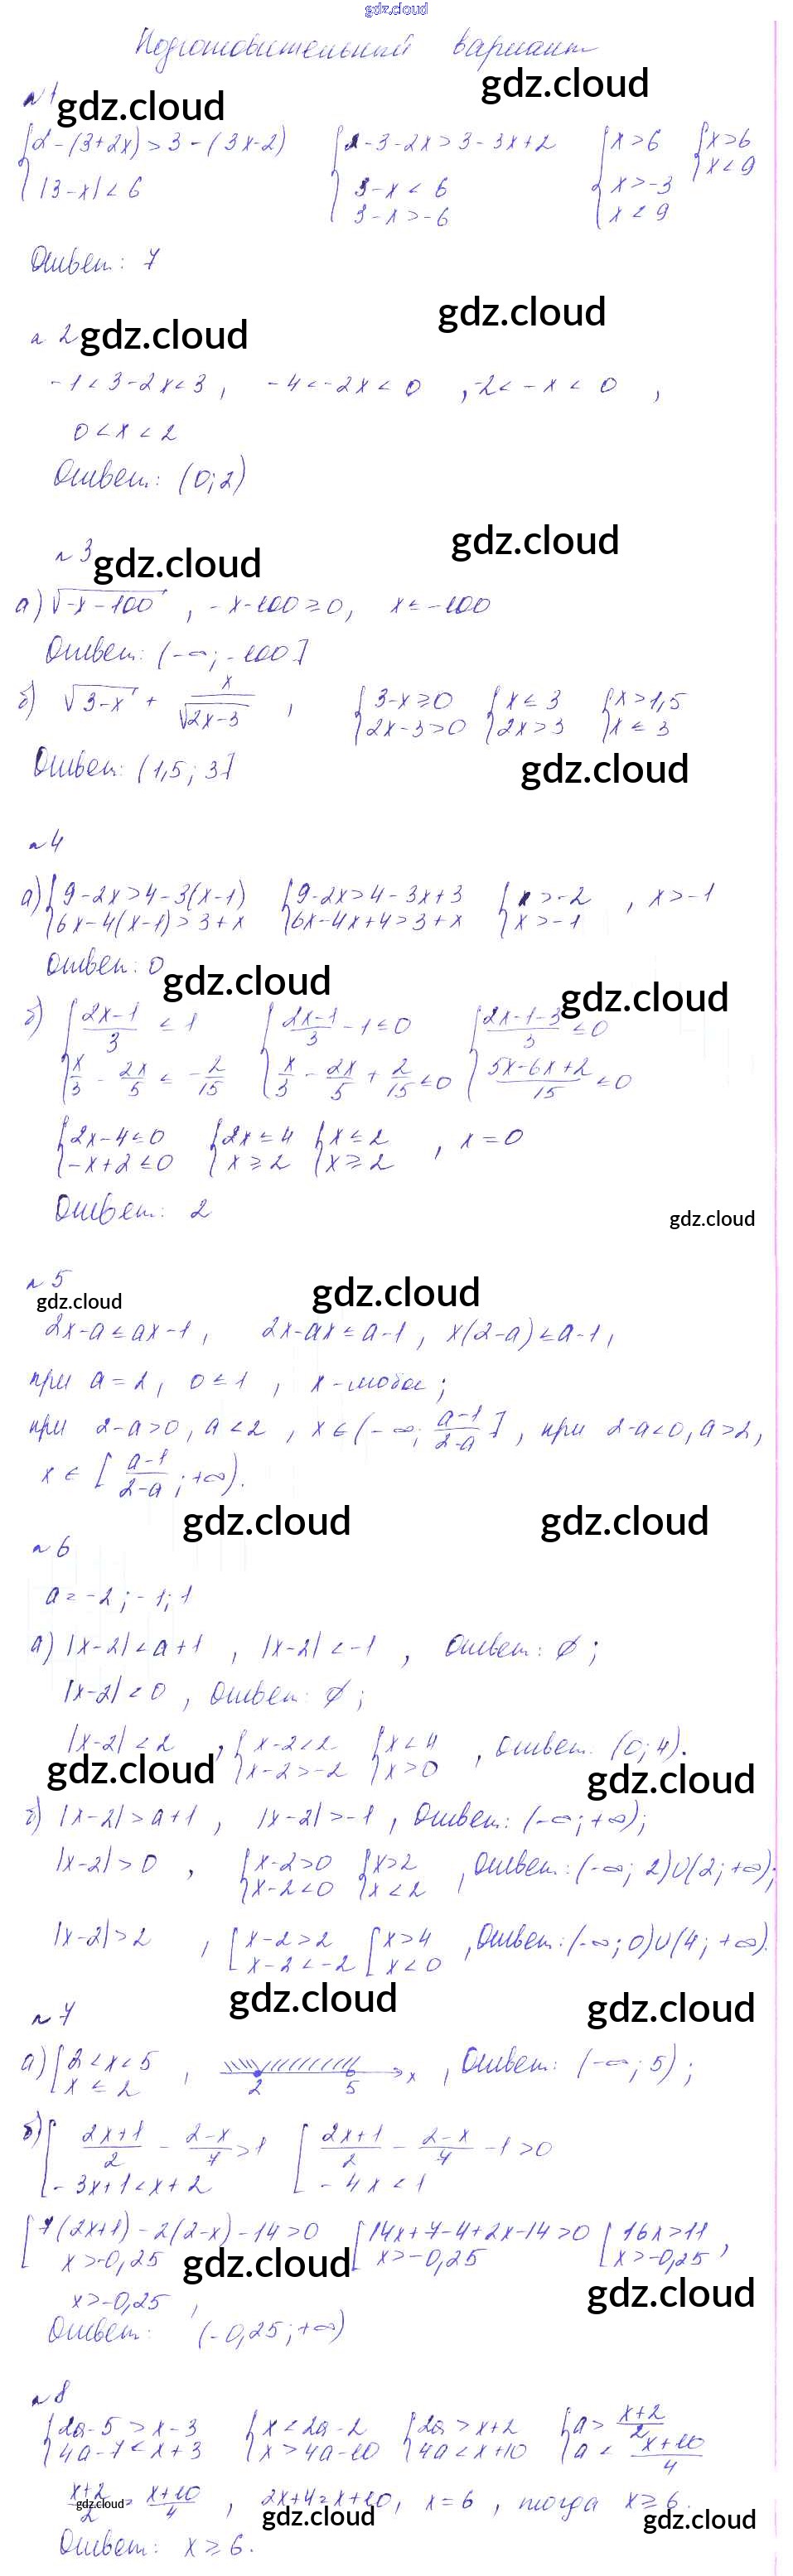 gdz.cloud
Подготовительный вариант
gdz.cloud
№ 1 gdz.cloud
{2-(3+2x)>3-(3x-2) {2-3-2x>3-3x+2 {x>6 {x>6
|3-x|<6 3-x<6 x>-3 x<9
3-x>-6 x<9
Ответ: 7
gdz.cloud
№ 2 gdz.cloud
-1<3-2x<3, -4<-2x<0, -2<-x<0,
0<x<2
Ответ: (0;2)
gdz.cloud
№ 3 gdz.cloud
а) √-x-100, -x-100≥0, x≤-100
Ответ: (-∞; -100]
б) √3-x + x/√2x-3, {3-x≥0 {x≤3 {x>1,5
2x-3>0 2x>3 x≤3
Ответ: (1,5; 3]
gdz.cloud
№ 4
а) {9-2x>4-3(x-1) {9-2x>4-3x+3 {x>-2, x>-1
6x-4(x-1)>3+x 6x-4x+4>3+x x>-1
Ответ: 0 gdz.cloud
gdz.cloud
б) {2x-1/3 ≤ 1 {2x-1/3 - 1≤0 {2x-1-3/3 ≤0
x/3 - 2x/5 ≤ -2/15 x/3 - 2x/5 + 2/15 ≤0 5x-6x+2/15 ≤0
{2x-4≤0 {2x≤4 {x≤2, x=0
-x+2≤0 x≥2 x≥2
Ответ: 2
gdz.cloud
№ 5 gdz.cloud
gdz.cloud
2x-a≤ax-1, 2x-ax≤a-1, x(2-a)≤a-1,
при a=2, 0≤1, x-любое;
при 2-a>0, a<2, x∈(-∞; a-1/2-a], при 2-a<0, a>2,
x∈[a-1/2-a; +∞).
gdz.cloud gdz.cloud
№ 6
a=-2; -1; 1
а) |x-2|<a+1, |x-2|<-1, Ответ: ∅;
|x-2|<0, Ответ: ∅;
|x-2|<2, {x-2<2 {x<4, Ответ: (0;4).
x-2>-2 x>0
gdz.cloud gdz.cloud
б) |x-2|>a+1, |x-2|>-1, Ответ: (-∞; +∞);
|x-2|>0, {x-2>0 {x>2, Ответ: (-∞; 2)∪(2; +∞);
x-2<0 x<2
|x-2|>2, [x-2>2 [x>4, Ответ: (-∞; 0)∪(4; +∞).
x-2<-2 x<0
gdz.cloud gdz.cloud
№ 7
а) [2<x<5, 2 5 x, Ответ: (-∞; 5);
x≤2
б) [2x+1/2 - 2-x/7 >1 [2x+1/2 - 2-x/7 -1>0
-3x+1<x+2 -4x<1
[7(2x+1)-2(2-x)-14>0 [14x+7-4+2x-14>0 [16x>11,
x>-0,25 x>-0,25 x>-0,25
gdz.cloud gdz.cloud
x>-0,25,
Ответ: (-0,25; +∞)
№ 8
{2a-5>x-3 {x<2a-2 {2a>x+2 {a> x+2/2
4a-7<x+3 x>4a-10 4a<x+10 a< x+10/4
x+2/2 = x+10/4, 2x+4=x+10, x=6, тогда x≥6.
gdz.cloud gdz.cloud gdz.cloud
Ответ: x≥6.